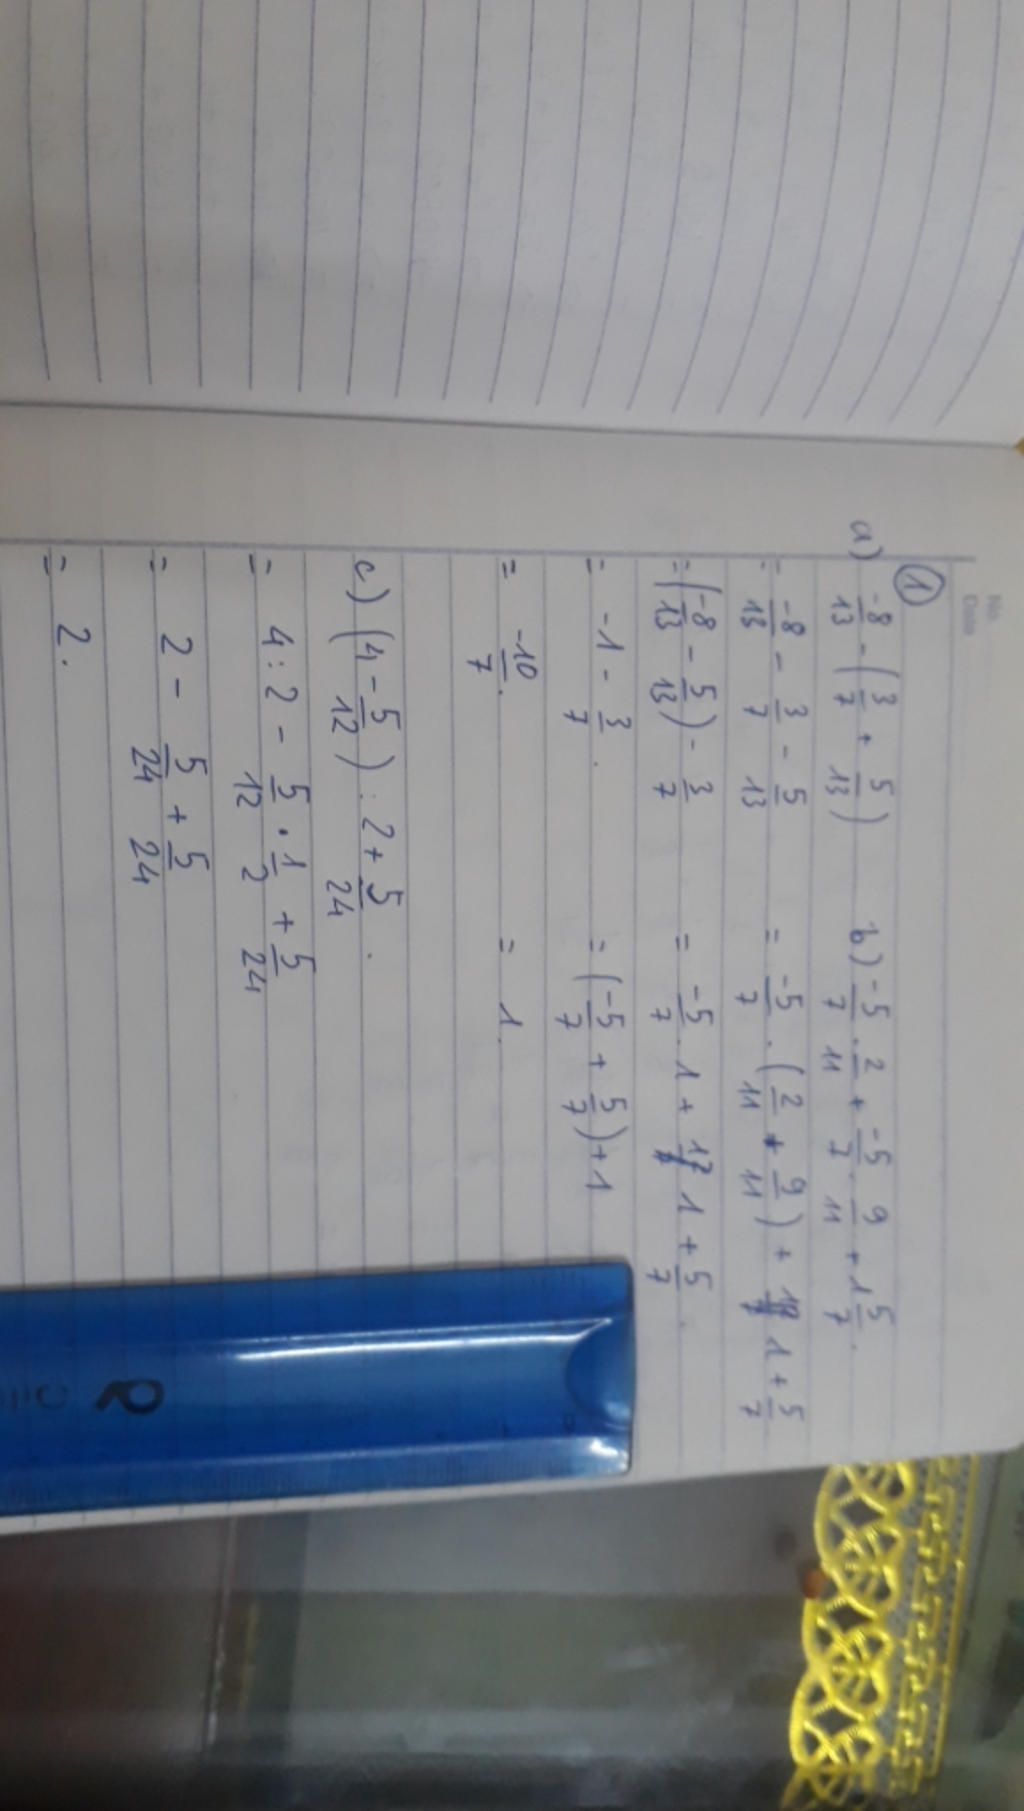 No.
Date
①
a) -8/13 - (3/7 + 5/13)
= -8/13 - 3/7 - 5/13
= (-8/13 - 5/13) - 3/7
= -1 - 3/7.
= -10/7.
b) -5/7 . 2/11 + -5/7 . 9/11 + 1 5/7.
= -5/7 . (2/11 + 9/11) + 1 + 5/7
= -5/7 . 1 + 1 + 5/7.
= (-5/7 + 5/7) + 1
= 1.
c) (4 - 5/12) : 2 + 5/24.
= 4 : 2 - 5/12 . 1/2 + 5/24
= 2 - 5/24 + 5/24
= 2.